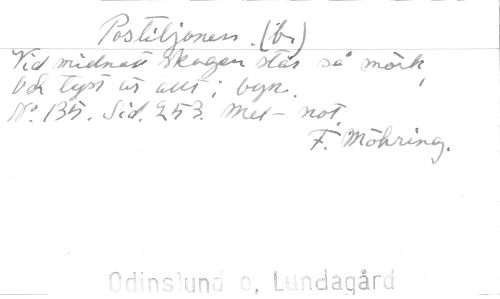 Postiljonen. (b.)
Vid midnatt skogen står så mörk,
Och tyst är allt i byn.
No. 135. Sid. 253. Mel-not.
F. Möhring.
Odinslund o, Lundagård